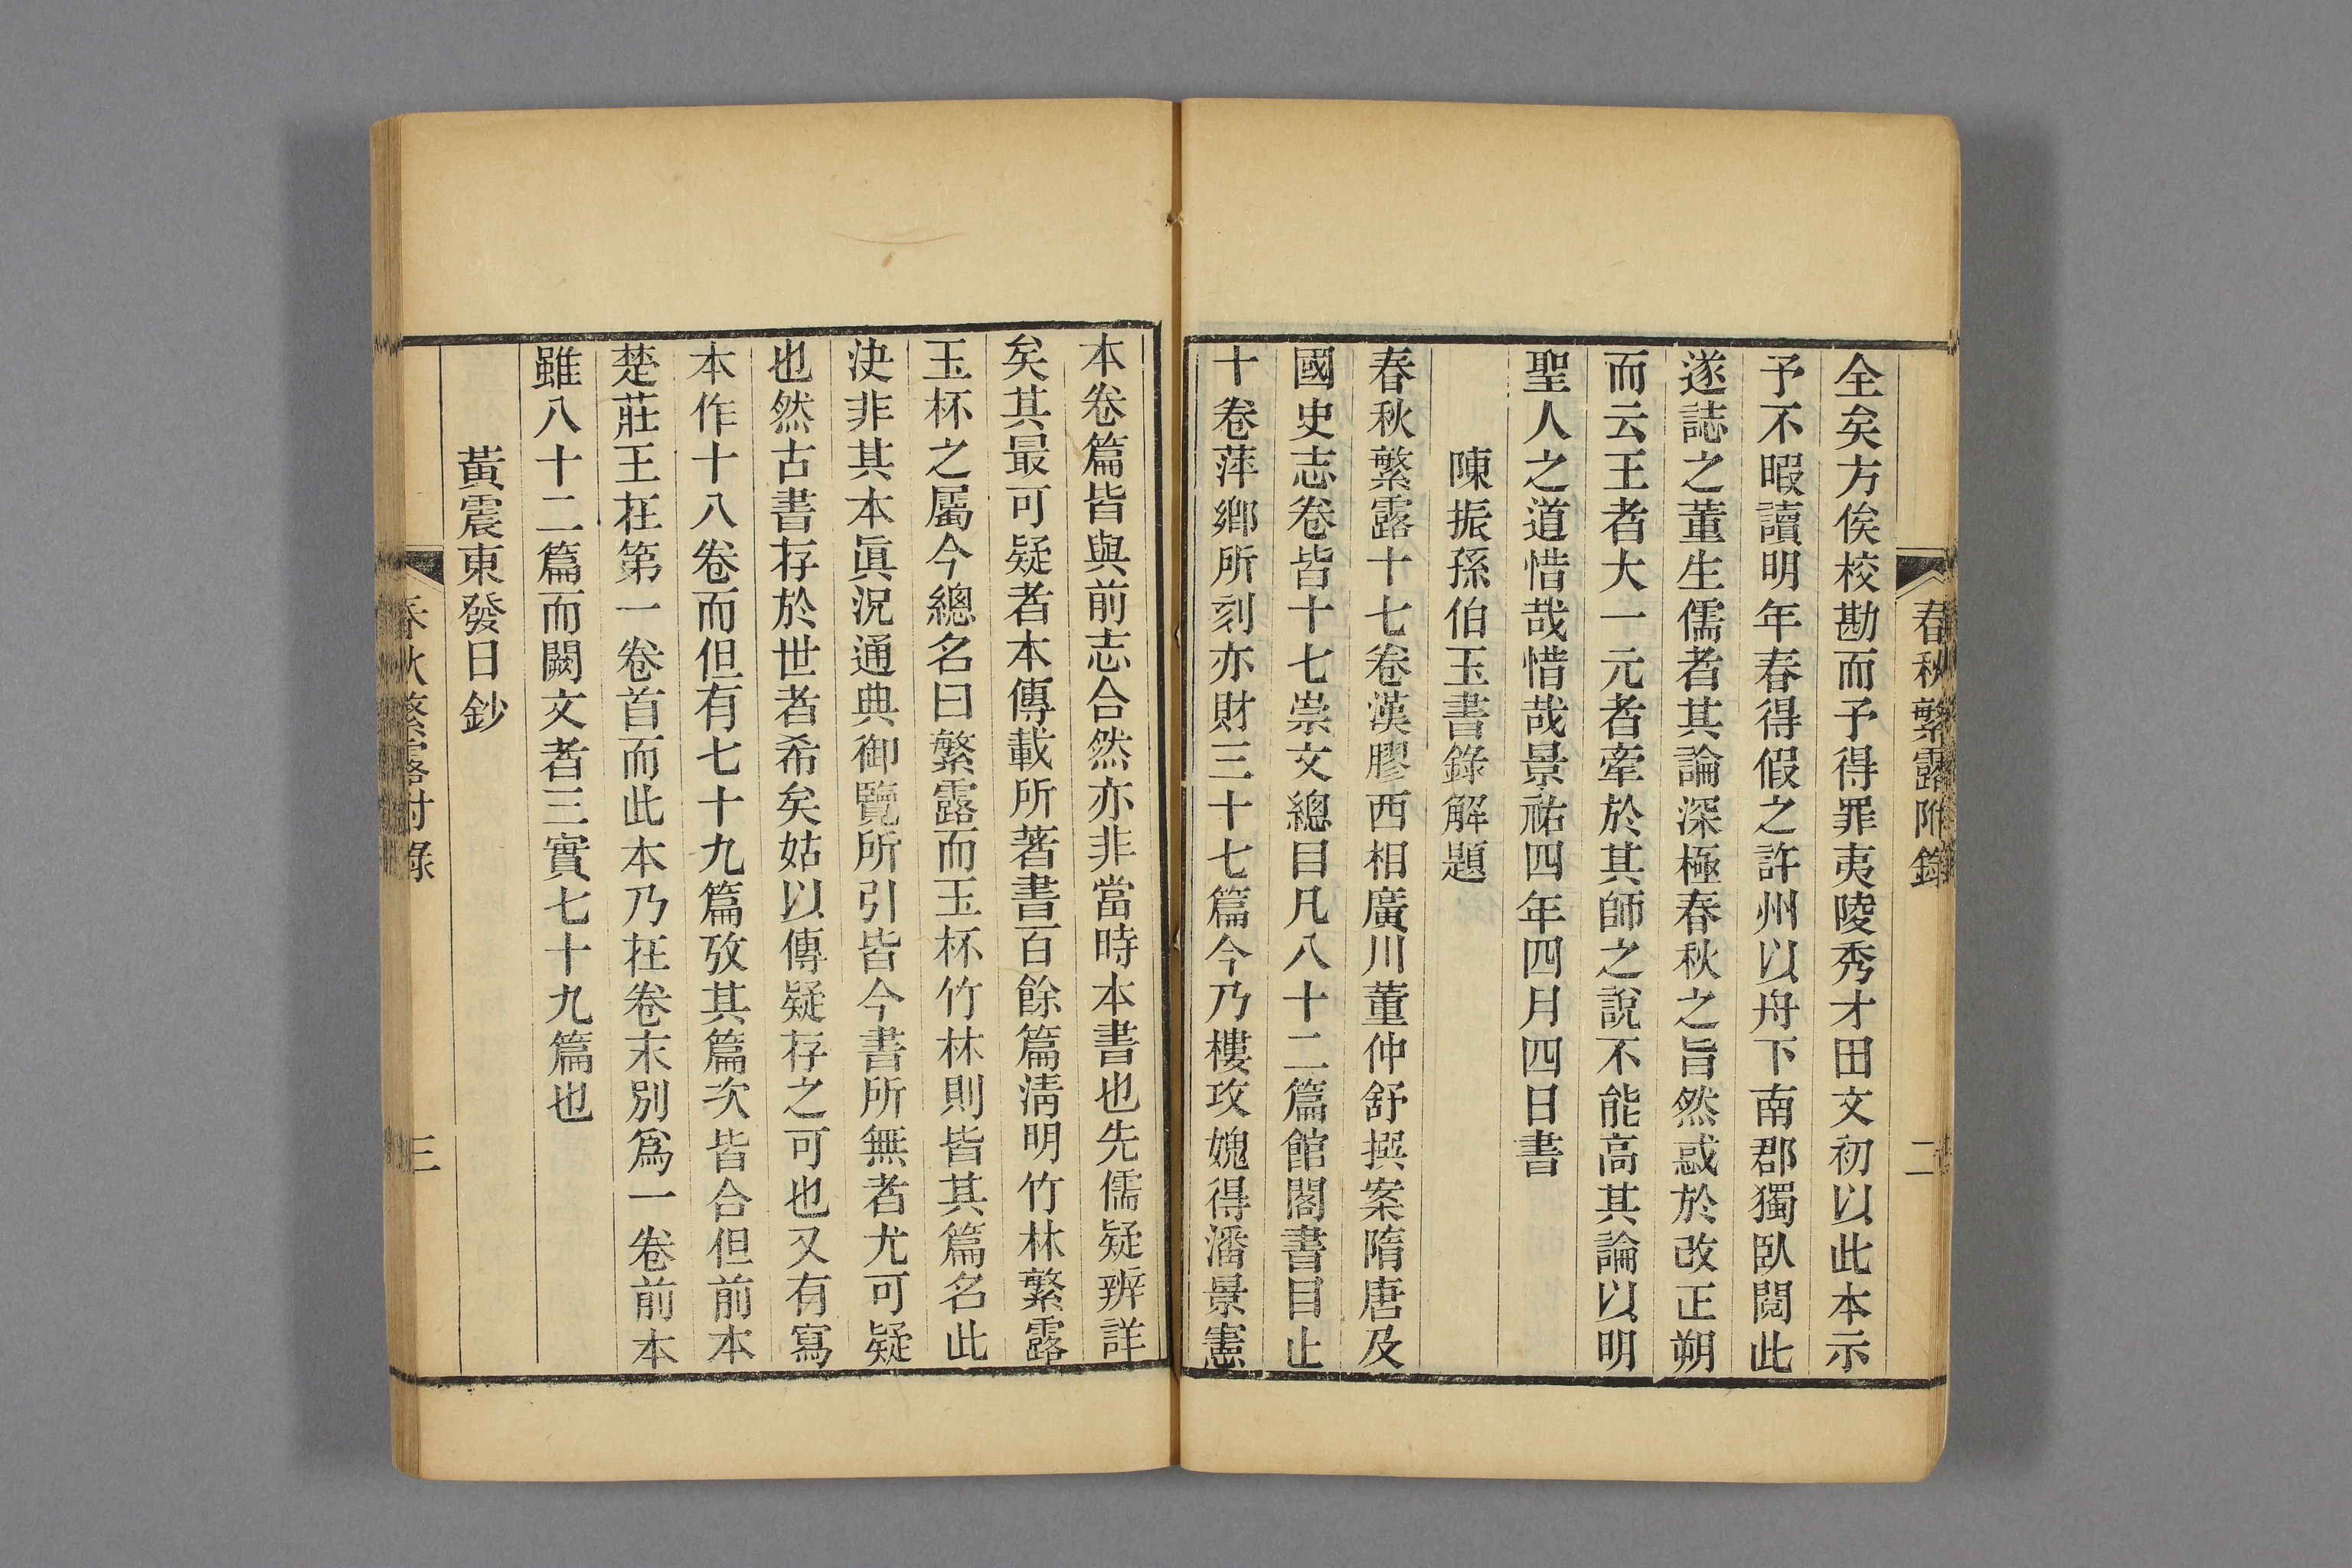 春秋繁露附錄
二
全矣方俟校勘而予得罪夷陵秀才田文初以此本示
予不暇讀明年春得假之許州以舟下南郡獨臥閱此
遂誌之董生儒者其論深極春秋之旨然惑於改正朔
而云王者大一元者牽於其師之說不能高其論以明
聖人之道惜哉惜哉景祐四年四月四日書
陳振孫伯玉書錄解題
春秋繁露十七卷漢膠西相廣川董仲舒撰案隋唐及
國史志卷皆十七崇文總目凡八十二篇館閣書目止
十卷萍鄉所刻亦財三十七篇今乃樓攻媿得潘景憲
本卷篇皆與前志合然亦非當時本書也先儒疑辨詳
矣其最可疑者本傳載所著書百餘篇淸明竹林繁露
玉杯之屬今總名曰繁露而玉杯竹林則皆其篇名此
決非其本眞況通典御覽所引皆今書所無者尤可疑
也然古書存於世者希矣姑以傳疑存之可也又有寫
本作十八卷而但有七十九篇攷其篇次皆合但前本
楚莊王在第一卷首而此本乃在卷末別爲一卷前本
雖八十二篇而闕文者三實七十九篇也
黃震東發日鈔
春秋繁露附錄
三